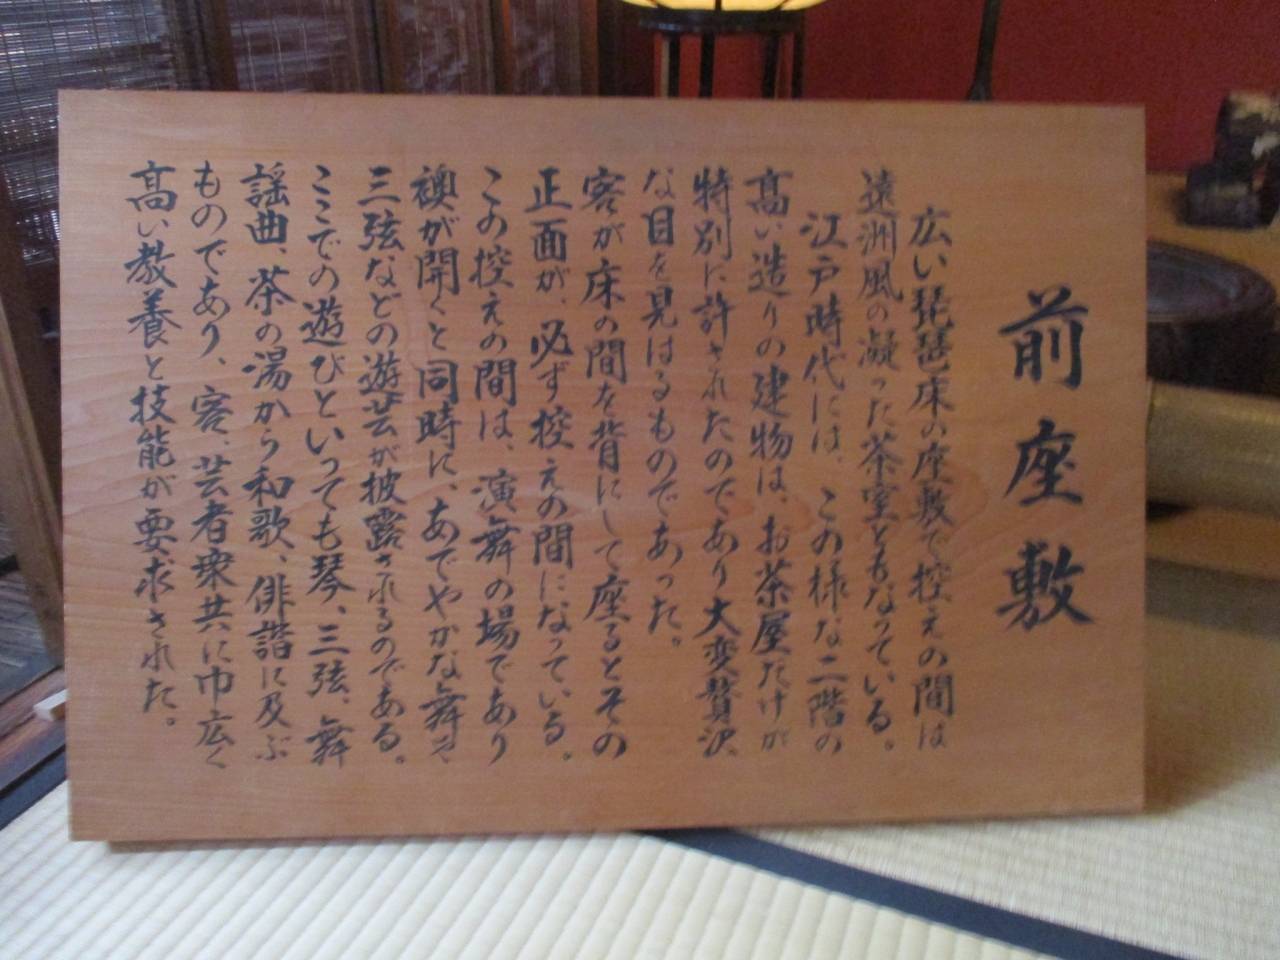 前座敷
広い琵琶床の座敷で控えの間は
遠洲風の凝った茶室ともなっている。
江戸時代には、この様な二階の
高い造りの建物は、お茶屋だけが
特別に許されたのであり大変贅沢
な目を見はるものであった。
客が床の間を背にして座るとその
正面が、必ず控えの間になっている。
この控えの間は、演舞の場であり
襖が開くと同時に、あでやかな舞や
三弦などの遊芸が披露されるのである。
ここでの遊びといっても琴、三弦、舞
謡曲、茶の湯から和歌、俳諧に及ぶ
ものであり、客、芸者衆共に巾広く
高い教養と技能が要求された。